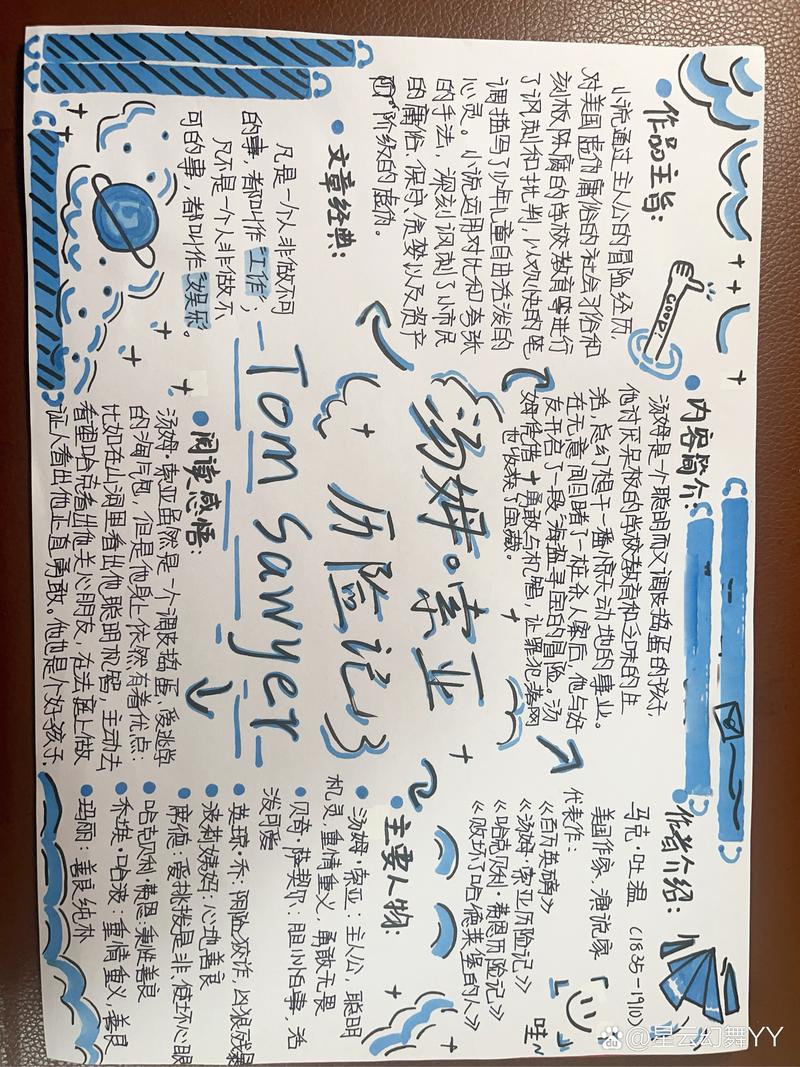 作品主旨:
小说通过主人公的冒险经历,
对美国虚伪庸俗的社会习俗和
刻板陈腐的学校教育等进行
了讽刺和批判,以欢快的笔
调描写了少年儿童自由活泼的
心灵。小说运用对比和夸张
的手法,深刻讽刺了小市民
的庸俗、保守、贪婪以及资产
阶级的虚伪。
GOOD!
文章经典:
凡是一个人非做不可
的事,都叫作“工作”;
凡不是一个人非做不
可的事,都叫作“娱乐”。
内容简介:
汤姆是一个聪明而又调皮捣蛋的孩子,
他讨厌呆板的学校教育和乏味的生
活,总幻想干一番惊天动地的事业。
在无意间目睹了一桩杀人案后,他与好
友开启了一段海盗寻宝的冒险。汤
姆凭借勇敢与机智,让罪犯落网
也收获了宝藏。
汤姆。索亚
历险记
Tom Sawyer
阅读感悟:
汤姆·索亚虽然是一个调皮捣蛋、爱逃学
的淘气包,但是他身上依然有着优点:
比如在山洞里看出他聪明机智,主动去
看望哈克看出他关心朋友,在法庭上做
证人看出他正直勇敢。他也是个好孩子
作者介绍:
马克·吐温 (1835-1910)
美国作家、演说家
代表作:
《百万英磅》
《汤姆·索亚历险记》
《哈克贝利·费恩历险记》
《败坏了哈德莱堡的人》
哇~
主要人物:
汤姆·索亚:主人公,聪明
机灵,重情重义,勇敢无畏
贝奇·萨契尔:胆小怕事、活
泼可爱
英琼·乔:阴险狡诈,凶狠残暴
波莉姨妈:心地善良
席德:爱挑拨是非、使坏心眼
哈克贝利·费恩:秉性善良
乔埃·哈波:重情重义,善良
玛丽:善良纯朴
@星云幻舞YY